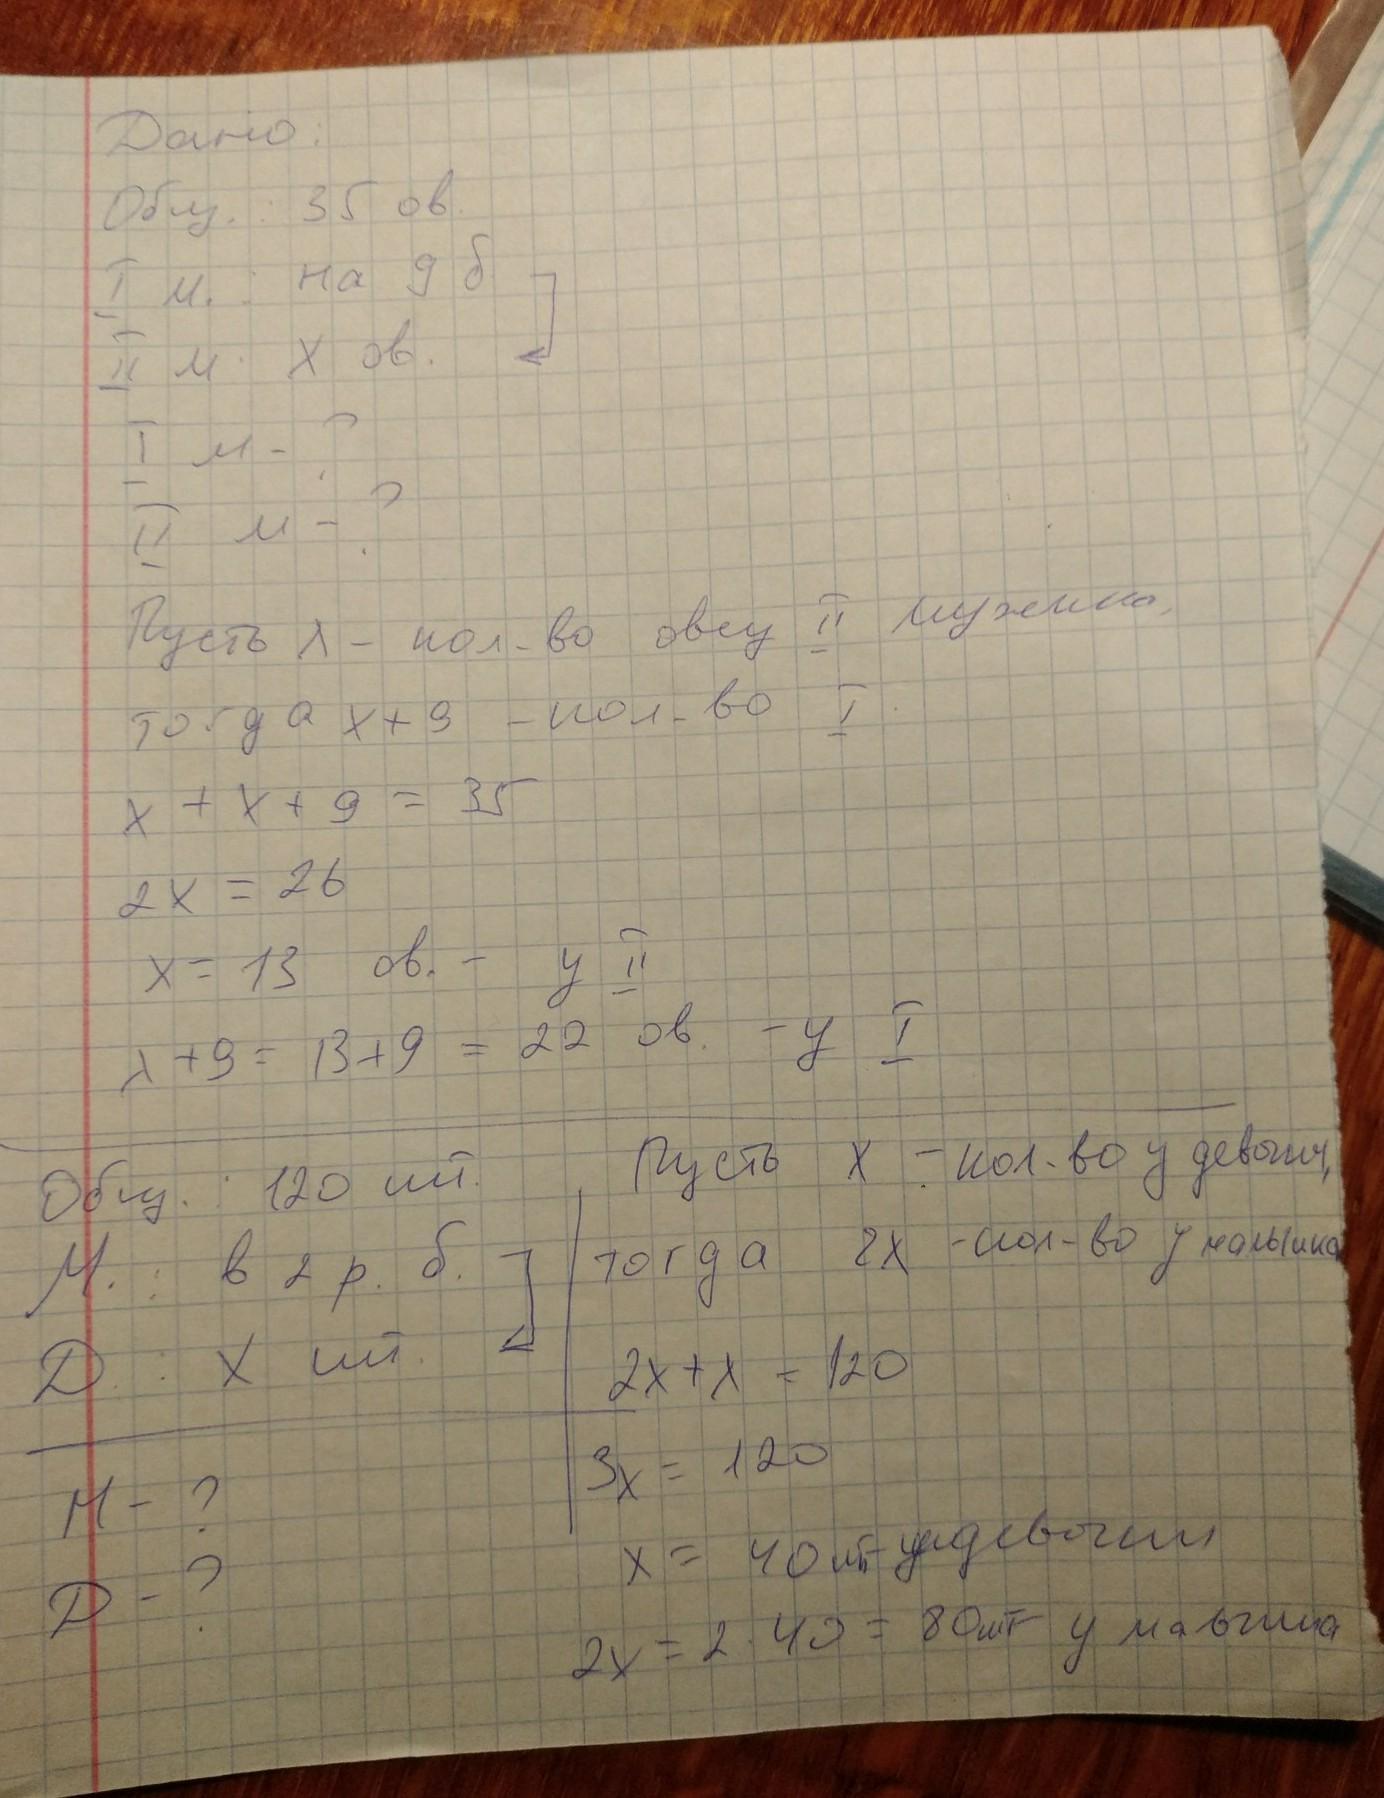 Дано:
Общ.: 35 ов.
I м.: на 9 б
II м: x ов.
I м - ?
II м - ?
Пусть x - кол-во овец у II мужика,
тогда x+9 - кол-во I.
x + x + 9 = 35
2x = 26
x = 13 ов. - у II
x+9 = 13+9 = 22 ов. - у I
Общ.: 120 шт.
М.: в 2 р. б.
Д.: x шт.
М - ?
Д - ?
Пусть x - кол-во у девочки,
тогда 2x - кол-во у мальчика
2x+x = 120
3x = 120
x = 40 шт у девочки
2x = 2·40 = 80шт у мальчика